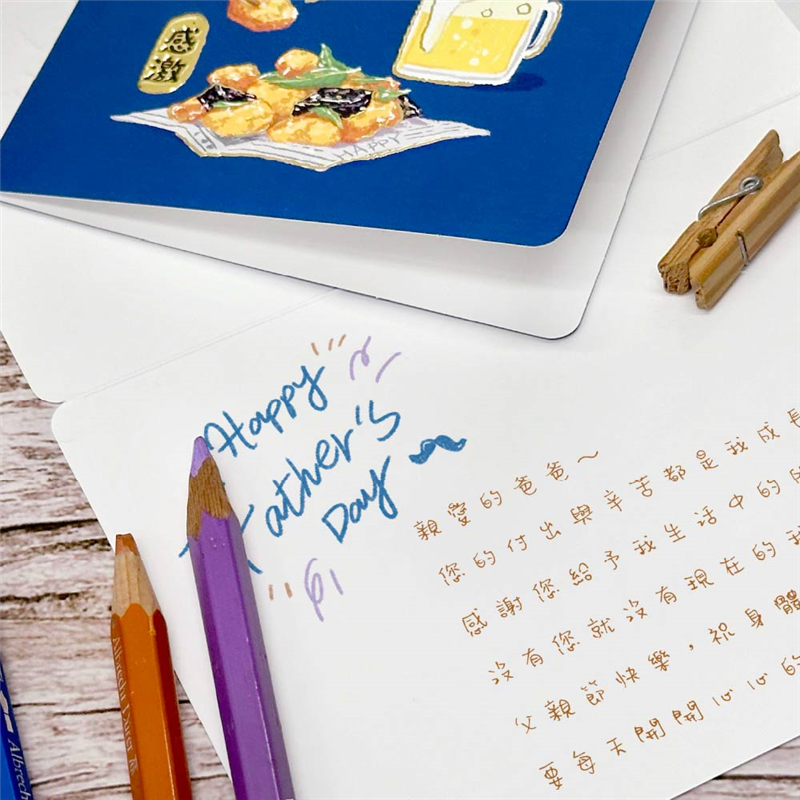 感激
HAPPY
Happy
Father's
Day
親愛的爸爸～
您的付出與辛苦都是我成長
您的給予我生活中的
感謝您
沒有您就沒有現在的我
父親節快樂，祝身體
要每天開開心心的
Albrecht Dürer
Albrech